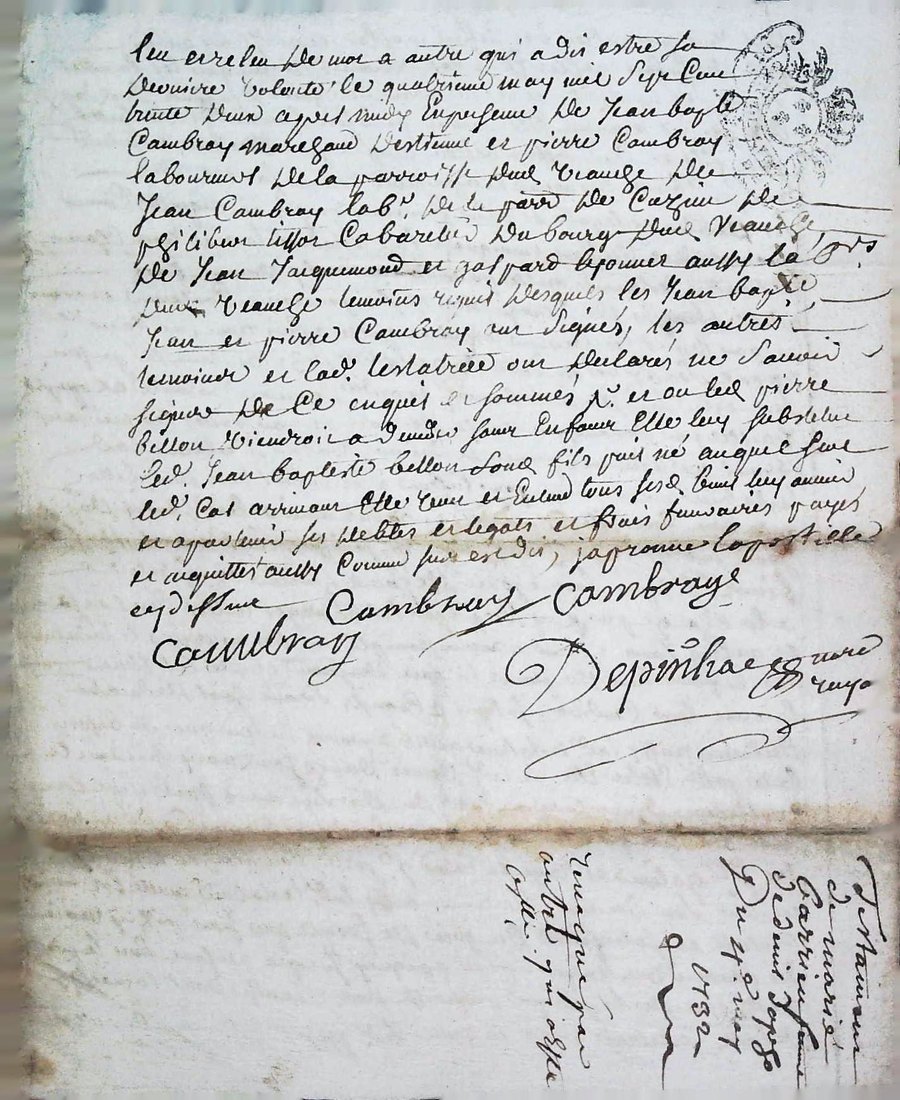 leu et releu de mot a autre qui a dis estre sa
derniere volonté le quatrieme may mil sept cent
trente deux apres midy En presence de Jean bapte
Cambray marchand destienne et pierre Cambray
laboureurs de la parroisse dud Veauche de
Jean Cambray labr. de la parr de Cuzieu de
philibert tissot Cabaretier du bourg dud Veauche
de Jean Jacquemond et gaspard lyonnet aussy labrs
dud Veauche temoins requis desquels les Jean baptte
Jean et pierre Cambray ont signés, les autres
temoins et lad. testatrice ont declarés ne Scavoir
signer de Ce enquis et sommés et ou led pierre
billon viendroit a deceder sans Enfans Elle luy substitue
led. Jean baptiste billon fils puis né auquel sune
led. Cas arrivant Elle veut et Entend tous sesd. biens luy avenir
et apartenir ses debtes et legats et frais funeraires payés
et acquittés aussy Comme sus est dit, japrouve lapostille
cy dessus
Cambray Cambraye
Cambray
Depinhac nore
royal
Testament
de marie
Carrien femme
de denis
Du 4e. may
1732
revoqué par
autre qui est